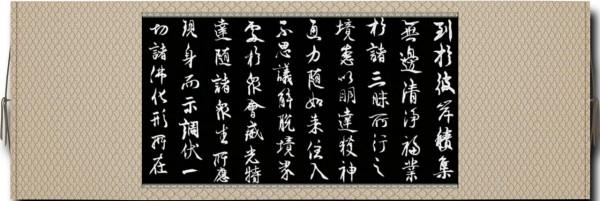 到於彼岸積集
無邊清淨福業
於諸三昧所行之
境悉以明達獲神
通力隨如來住入
不思議解脫境界
處於眾會威光特
達隨諸眾生所應
現身而示調伏一
切諸佛化形所在